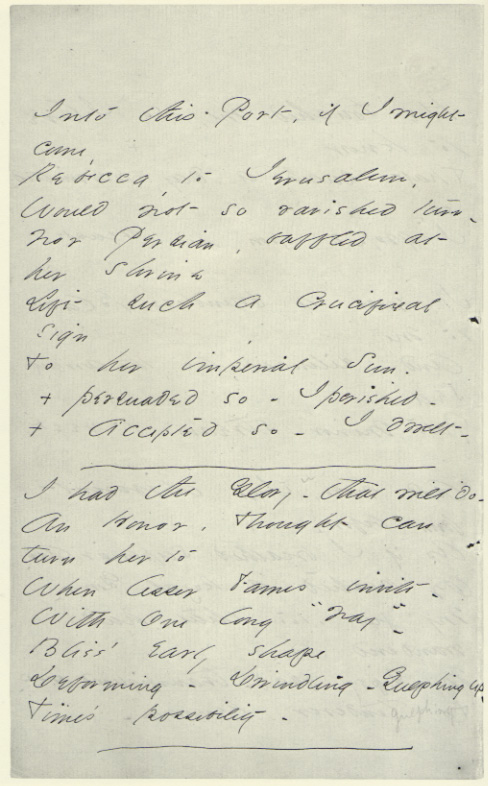 Into this Port, if I might
come,
Rebecca, to Jerusalem,
Would not so ravished turn -
Nor Persian, baffled at
her shrine
Lift such a Crucifixal
sign
To her imperial Sun.
+ persuaded so - I perished -
+ Accepted so - I dwelt -
I had the Glory - that will do -
An Honor, Thought can
turn her to
When lesser Fames invite -
With One long "Nay" -
Bliss' Early shape
Deforming - Dwindling - Gulphing up -
Time's possibility -